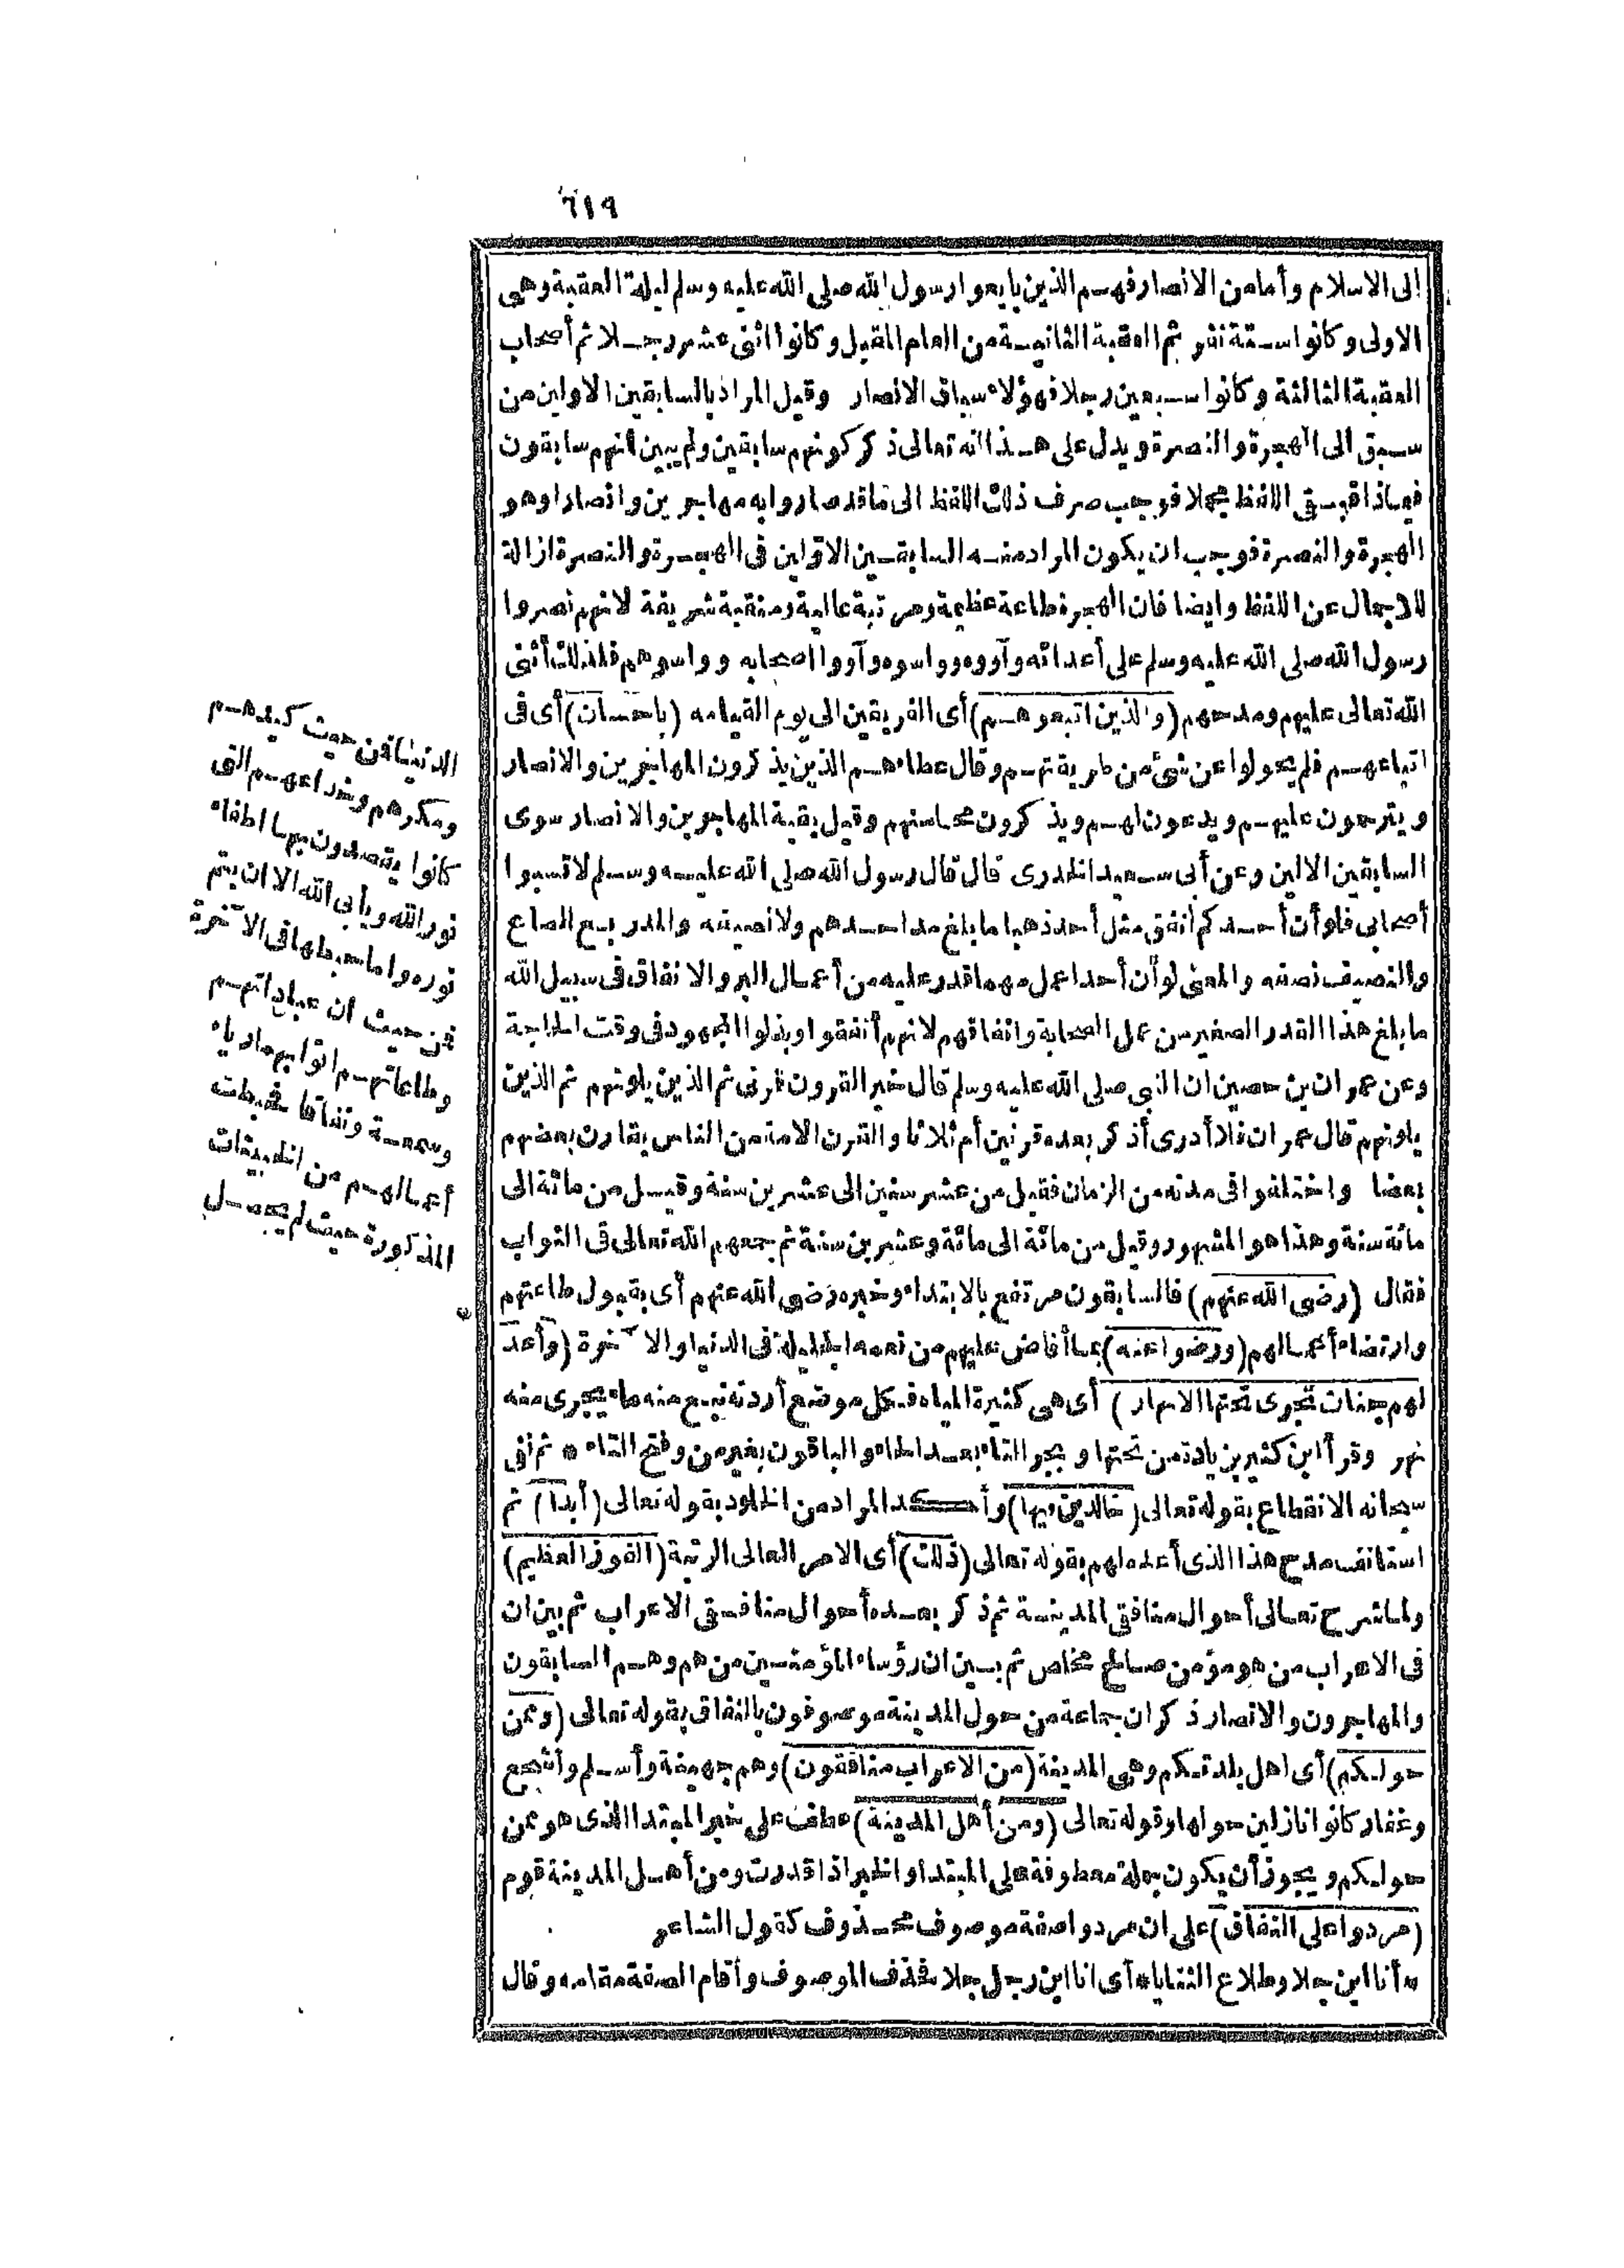 ٦١٩
إلى الاسلام وأما من الانصار فهم الذين بايعوا رسول الله صلى الله عليه وسلم ليلة العقبة وهى
الاولى وكانوا ستة نفر ثم العقبة الثانية من العام المقبل وكانوا اثنى عشر رجلا ثم أصحاب
العقبة الثالثة وكانوا سبعين رجلا فهؤلاء سباق الانصار وقيل المراد بالسابقين الاولين من
سبق الى الهجرة والنصرة ويدل على هذا انه تعالى ذكر كونهم سابقين ولم يبين أنهم سابقون
فيماذا فبقى اللفظ مجملا فوجب صرف ذلك اللفظ الى ما قد صاروا به مهاجرين وانصارا وهو
الهجرة والنصرة فوجب ان يكون المراد منه السابقين الاولين فى الهجرة والنصرة ازالة
للاجمال عن اللفظ وايضا فان الهجرة طاعة عظيمة ومرتبة عالية ومنقبة شريفة لانهم نصروا
رسول الله صلى الله عليه وسلم على أعدائه وآووه وواسوه وآووا اصحابه وواسوهم فلذلك أثنى
الله تعالى عليهم ومدحهم (والذين اتبعوهم) أى الفريقين الى يوم القيامة (باحسان) أى فى
اتباعهم فلم يحولوا عن شئ من طريقتهم وقال عطاء هم الذين يذكرون المهاجرين والانصار
ويترحمون عليهم ويدعون لهم ويذكرون محاسنهم وقيل بقية المهاجرين والانصار سوى
السابقين الالين وعن أبى سعيد الخدرى قال قال رسول الله صلى الله عليه وسلم لا تسبوا
أصحابى فلو أن أحدكم أنفق مثل أحد ذهبا ما بلغ مد احدهم ولا نصيفه والمد ربع الصاع
والنصيف نصفه والمعنى لو أن أحدا عمل مهما قدر عليه من أعمال البر والانفاق فى سبيل الله
ما بلغ هذا القدر الصغير من عمل الصحابة وانفاقهم لانهم أنفقوا وبذلوا المجهود فى وقت الحاجة
وعن عمران بن حصين ان النبى صلى الله عليه وسلم قال خير القرون قرنى ثم الذين يلونهم ثم الذين
يلونهم قال عمران فلا أدرى أذكر بعده قرنين أم ثلاثا والقرن الامة من الناس يقارن بعضهم
بعضا واختلفوا فى مدته من الزمان فقيل من عشر سنين الى عشرين سنة وقيل من مائة الى
مائة سنة وهذا هو المشهور وقيل من مائة الى مائة وعشرين سنة ثم جمعهم الله تعالى فى الثواب
فقال (رضى الله عنهم) فالسابقون مرتفع بالابتداء وخبره رضى الله عنهم أى بقبول طاعتهم
وارتضاء أعمالهم (ورضوا عنه) بما أفاض عليهم من نعمه الجليلة فى الدنيا والآخرة (وأعد
لهم جنات تجرى تحتها الانهار) أى هى كثيرة المياه فكل موضع أردته نبع منه ماء يجرى منه
نهر وقرأ ابن كثير بزيادة من تحتها وبجر التاء بعد الحاء والباقون بغير من وفتح التاء * ثم نفى
سبحانه الانقطاع بقوله تعالى (خالدين فيها) وأكد المراد من الخلود بقوله تعالى (أبدا) ثم
استأنف مدح هذا الذى أعده لهم بقوله تعالى (ذلك) أى الامر العالى الرتبة (الفوز العظيم)
ولما شرح تعالى أحوال منافقى المدينة ثم ذكر بعده أحوال منافقى الاعراب ثم بين ان
فى الاعراب من هو مؤمن صالح مخلص ثم بين ان رؤساء المؤمنين من هم وهم السابقون
والمهاجرون والانصار ذكر ان جماعة من حول المدينة موصوفون بالنفاق بقوله تعالى (وممن
حولكم) أى اهل بلدتكم وهى المدينة (من الاعراب منافقون) وهم جهينة وأسلم وأشجع
وغفار كانوا نازلين حولها وقوله تعالى (ومن أهل المدينة) عطف على خبر المبتدا الذى هو ممن
حولكم ويجوز أن يكون جملة معطوفة على المبتدا والخبر اذا قدرت ومن أهل المدينة قوم
(مردوا على النفاق) على ان مردوا صفة موصوف محذوف كقول الشاعر
* أنا ابن جلا وطلاع الثنايا * أى انا ابن رجل جلا فحذف الموصوف وأقام الصفة مقامه وقال
الدنيا فمن حيث كيدهم
ومكرهم وخداعهم التى
كانوا يقصدون بها اطفاء
نور الله ويأبى الله الا ان يتم
نوره واما حبطها فى الآخرة
فمن حيث ان عباداتهم
وطاعاتهم اتوا بها رياء
وسمعة ونفاقا فحبطت
أعمالهم من الحيثيات
المذكورة حيث لم يحصل